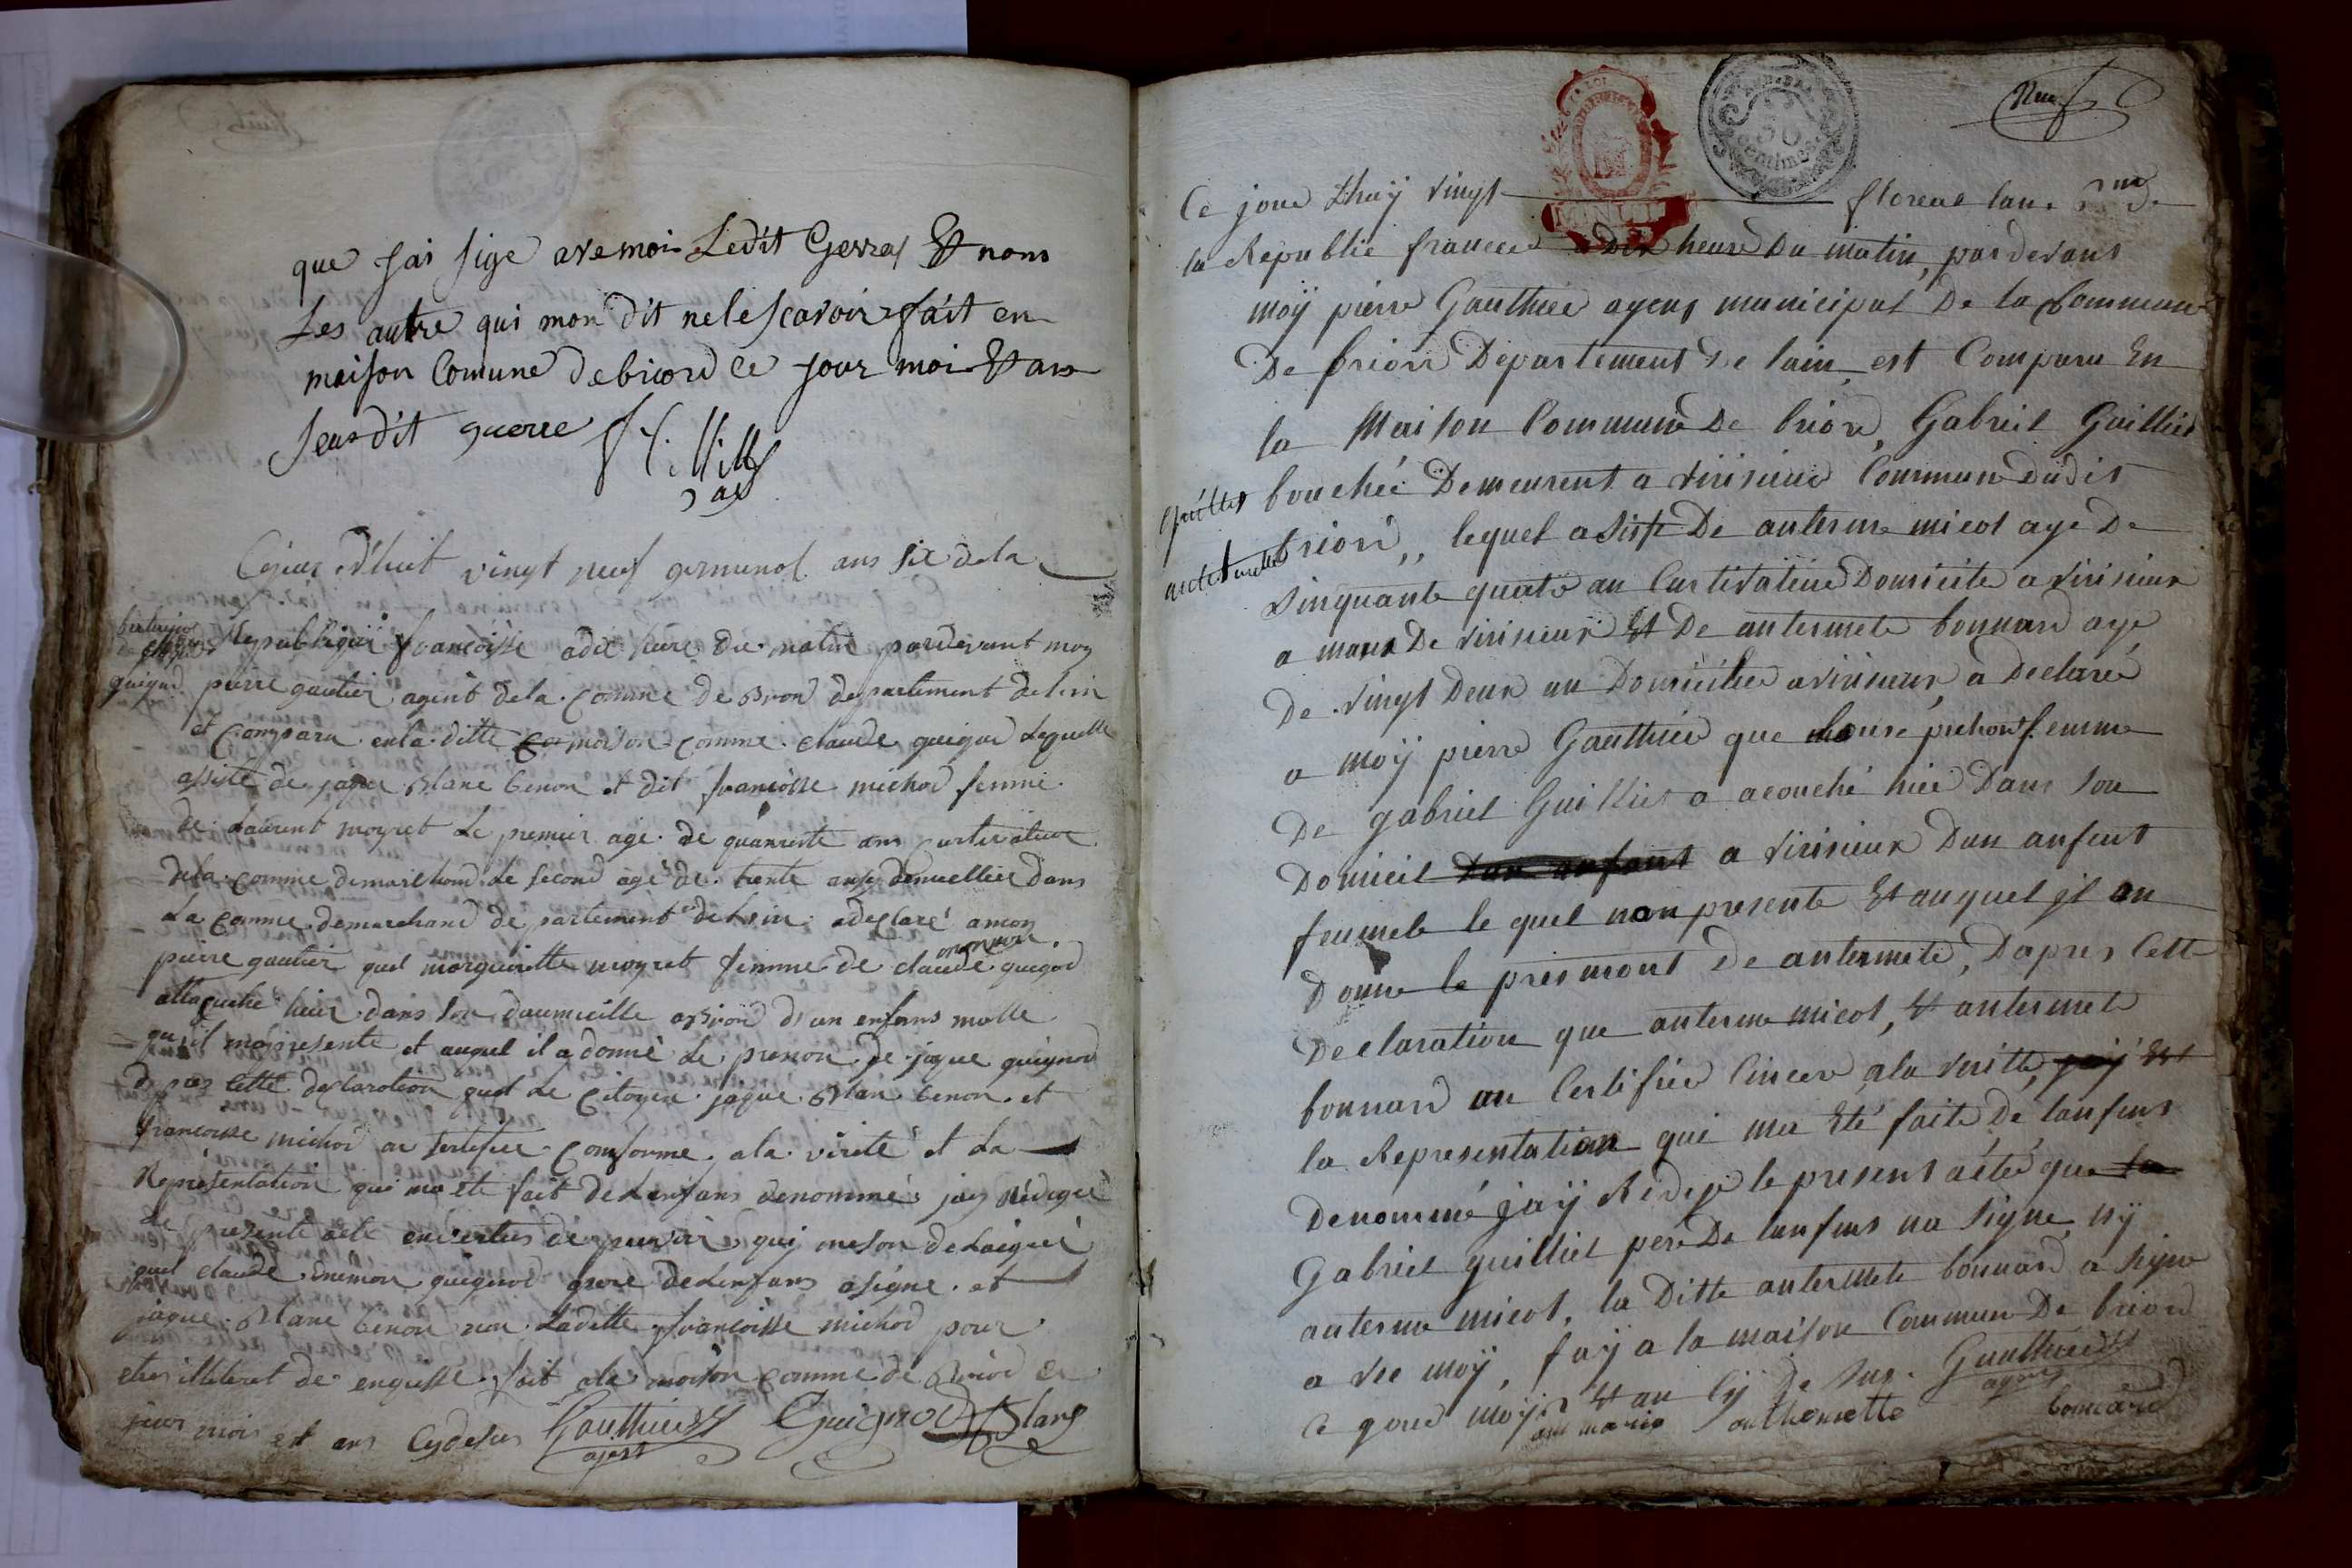 que jai sige avemoi Ledit Gerres Et nons
Les autre qui mon dit nele scavoir fait en
maison Comune debriord ce jour moi Et an
seusdit guerre
Cejour d'huit vingt neuf germinal ans six dela
Republiqui francoisse adix heure du matin pardevant moy
guignod
pierre gautier agent dela comme de Briord departement delein
et Comparu enla ditte maison comme claude guignod Lequelle
assiste de jaque Blanc benon et dit francoisse michod femme
de Laurent moyret Le premier age de quarente ans curtivateur
dela comme demarchand Le second age de trente ans domuellier dans
La comme demarchand departement deLein adeclaré amoy
pierre gautier quel margueritte moyret femme de claude guignod
attacuché hier dans son daumicille a Briord d'un enfans malle
qu'il mapresente et auquel il a donné Le prenon de jaque guignod
d'pres cette declaration quel Le Citoyen jaque Blan benon et
francoisse michod on sertifier Conforme ala virité et La
Représentation qui ma eté fait deLenfans denommés jay Rédigée
Le presente acte envertus dé pouvoir qui meson deLaigué
quel claude enemon guignod pere deLenfans asigne et
jaque Blanc benon non Ladette francoisse michod pour
etre illiteret de enquisse fait ala maison comme de Briord ce
jour mois est ans Cydesus Gauthier Guignod Blanc
agent
Neuf
50
centimes
Ce jour d'huÿ vingt floreal lan 6me de
la Republie francese a Dix heure Du matin, pardevant
moÿ pierre Gauthiée agent municipal De la Commune
De briord Departement De lain, est Comparu En
la Maison Commune De briord, Gabriel Guilliet
bouchée Demeurent a virisieux Commun Dudit
guilliet
briord,, lequel a sisté De anterme micot age De
antermette
sinquante quatre an Curtivateur Domicile a virisieux
a maria De virisieux Et De antermete bonnard age
De vingt Deux an Domicilie a virisieux, a Declaré
a moÿ pierre Gauthiée que Louise prehost femme
De gabriel Guilliet a acouché hiée Dans son
Domicil Dun anfant a virisieux Dun anfent
femmele le quel man presente Et auquel jl an
Donne le presmont De antermete, Dapres Cett
Declaration que anterme micot, Et antermete
bonnard an Certifiée Cincer a la veritte, jaÿ Est
la Representation qui ma Eté faite De lanfens
Denommé jaÿ Redige le present acté que la
Gabriel guilliet pere De lanfens na signe, nÿ
anterme micot, la Ditte antermete bonnard a signe
a vec moÿ, faÿ a la maison Commun De briord
ce jour moÿ Et an Cÿ De sus. Gauthier
agent
ane marie anthemette bonnard